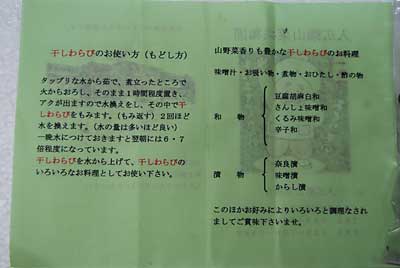 干しわらびのお使い方(もどし方)
タップリな水から茹で、煮立ったところで
火からおろし、そのまま1時間程度置き、
アクが出ますので水換えをし、その中で干
しわらびをもみます。(もみ返す)2回ほど
水を換えます。(水の量は多いほど良い)
一晩水につけておきますと翌朝には6・7
倍程度になっています。
干しわらびを水から上げて、干しわらびの
いろいろなお料理としてお使い下さい。
山野菜香りも豊かな干しわらびのお料理
味噌汁・お吸い物・煮物・おひたし・酢の物
和 物
豆腐胡麻白和
さんしょ味噌和
くるみ味噌和
辛子和
漬 物
奈良漬
味噌漬
からし漬
このほかお好みによりいろいろと調理なされ
ましてご賞味下さいませ。